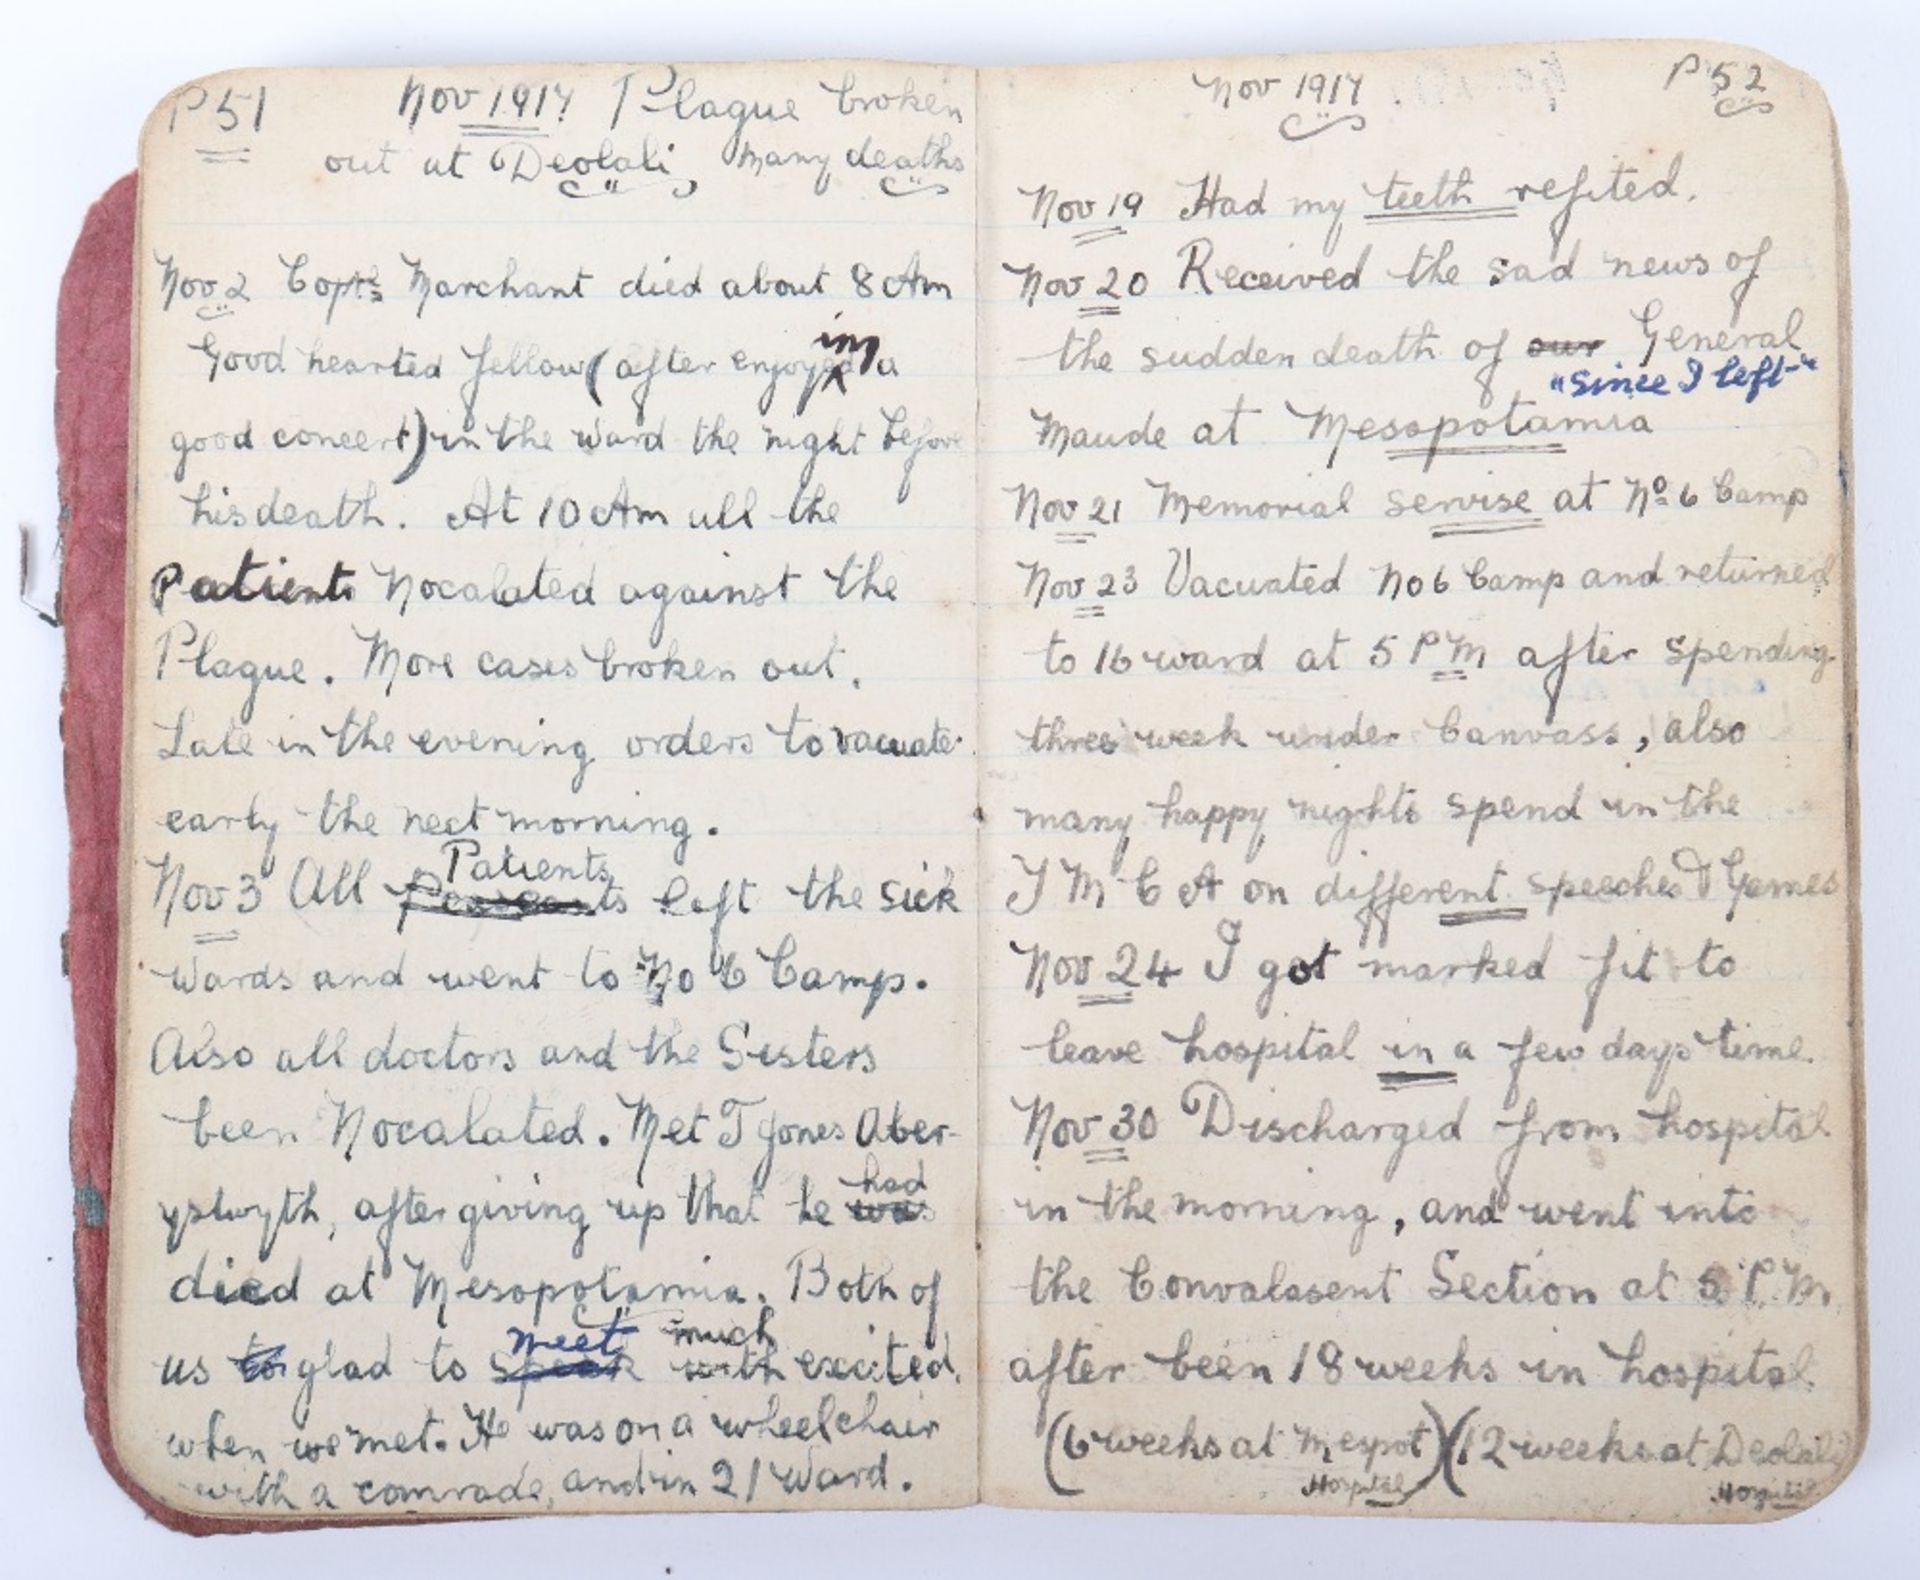 P 51 Nov 1917. Plague broken
out at Deolali, Many deaths
Nov 2 Marchant died about 8 Am
Good hearted fellow (after enjoying a
good concert) in the ward the night before
his death. At 10 Am all the
Patients Nocalated against the
Plague. More cases broken out.
Late in the evening orders to vacuate
early the nect morning.
Nov 3 All Patients left the sick
wards and went to No 6 Camp.
Also all doctors and the Sisters
been Nocalated. Met T Jones Aber-
ystwyth, after giving up that he was had
died at Mesopotamia. Both of
us glad to speak meet with much excited
when we met. He was on a wheelchair
with a comrade, and in 21 Ward.
Nov 1917. P 52
Nov 19 Had my teeth refited.
Nov 20 Received the sad news of
the sudden death of our General
"Since I left"
Maude at Mesopotamia
Nov 21 Memorial servise at No 6 Camp
Nov 23 Vacuated No 6 Camp and returned
to 16 ward at 5 PM after spending
three week under Canvass, also
many happy nights spend in the
Y M C A on different speeches & Games
Nov 24 I got marked fit to
leave hospital in a few days time.
Nov 30 Discharged from hospital
in the morning, and went into
the Convalasent Section at 5 P.M
after been 18 weeks in hospital
(6 weeks at Mespot) (12 weeks at Deolali
Hospital Hospital